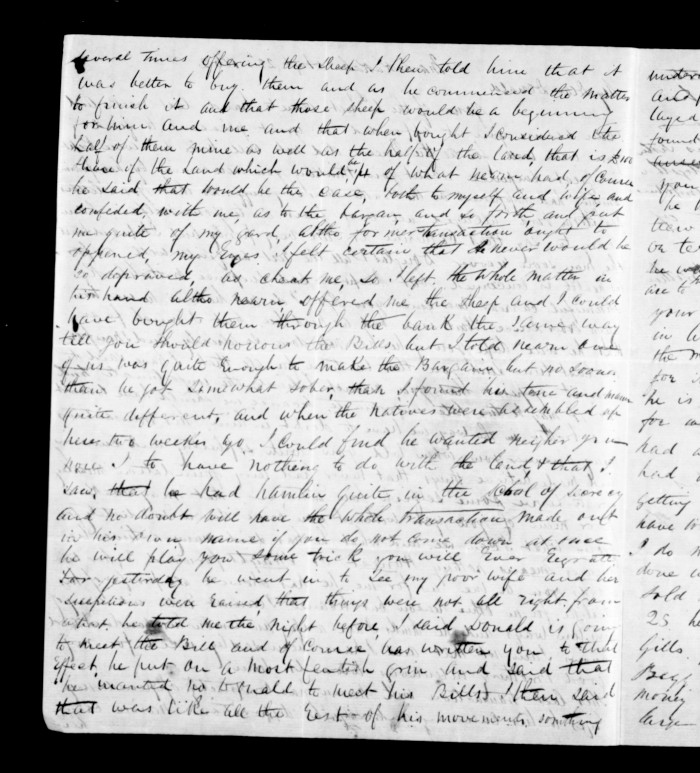 several times offering the sheep I then told him that it
was better to buy them and as he commenced the matter
to finish it and that those sheep would be a beginning
for him and me, and that when bought I considered the
half of them mine as well as the half of the land, that is
share of the land which would be of what Nearn had, of Course
he said that would be the case, both to myself and wife, and
confided, with me, as to the bargain and so forth and put
me quite of my gard, altho former transaction ought to
oppened, my Eyes, I felt certain that he never would be
so depraved, as cheat me, so I left the whole matter in
his hand altho Nearn offered me the sheep and I could
have bought them through the bank the same way
till you should the Bills, but I told Nearn one
of us was quite Enough to make the Bargain, but no sooner
than he got somewhat sober, than I found his tone and
quite different, and when the natives were assembled up
here two weekes go I could find he wanted neigher you
nore I to have nothing to do with the land, & that I
saw, that he had Hamlin quite in the of
and no doubt will have the whole transaction made out
in his own name if you do not come down at once
he will play you some trick you will Ever Regrate
For yesterday he went in to see my poor wife and her
suspitions were raised, that things were not all right from
what he told me the night before, I said Donald is going
to meet the Bill and of Course has written you to that
Effect, he put on a most grin and said that
he wanted no to meet his Bills, I then said
that was like all the rest of his movements something
under
and
layed
found
you
he

your
in
the
for
he is
for
had
had
getting
have to
I do
done
told
25 he
Gills.
money
large